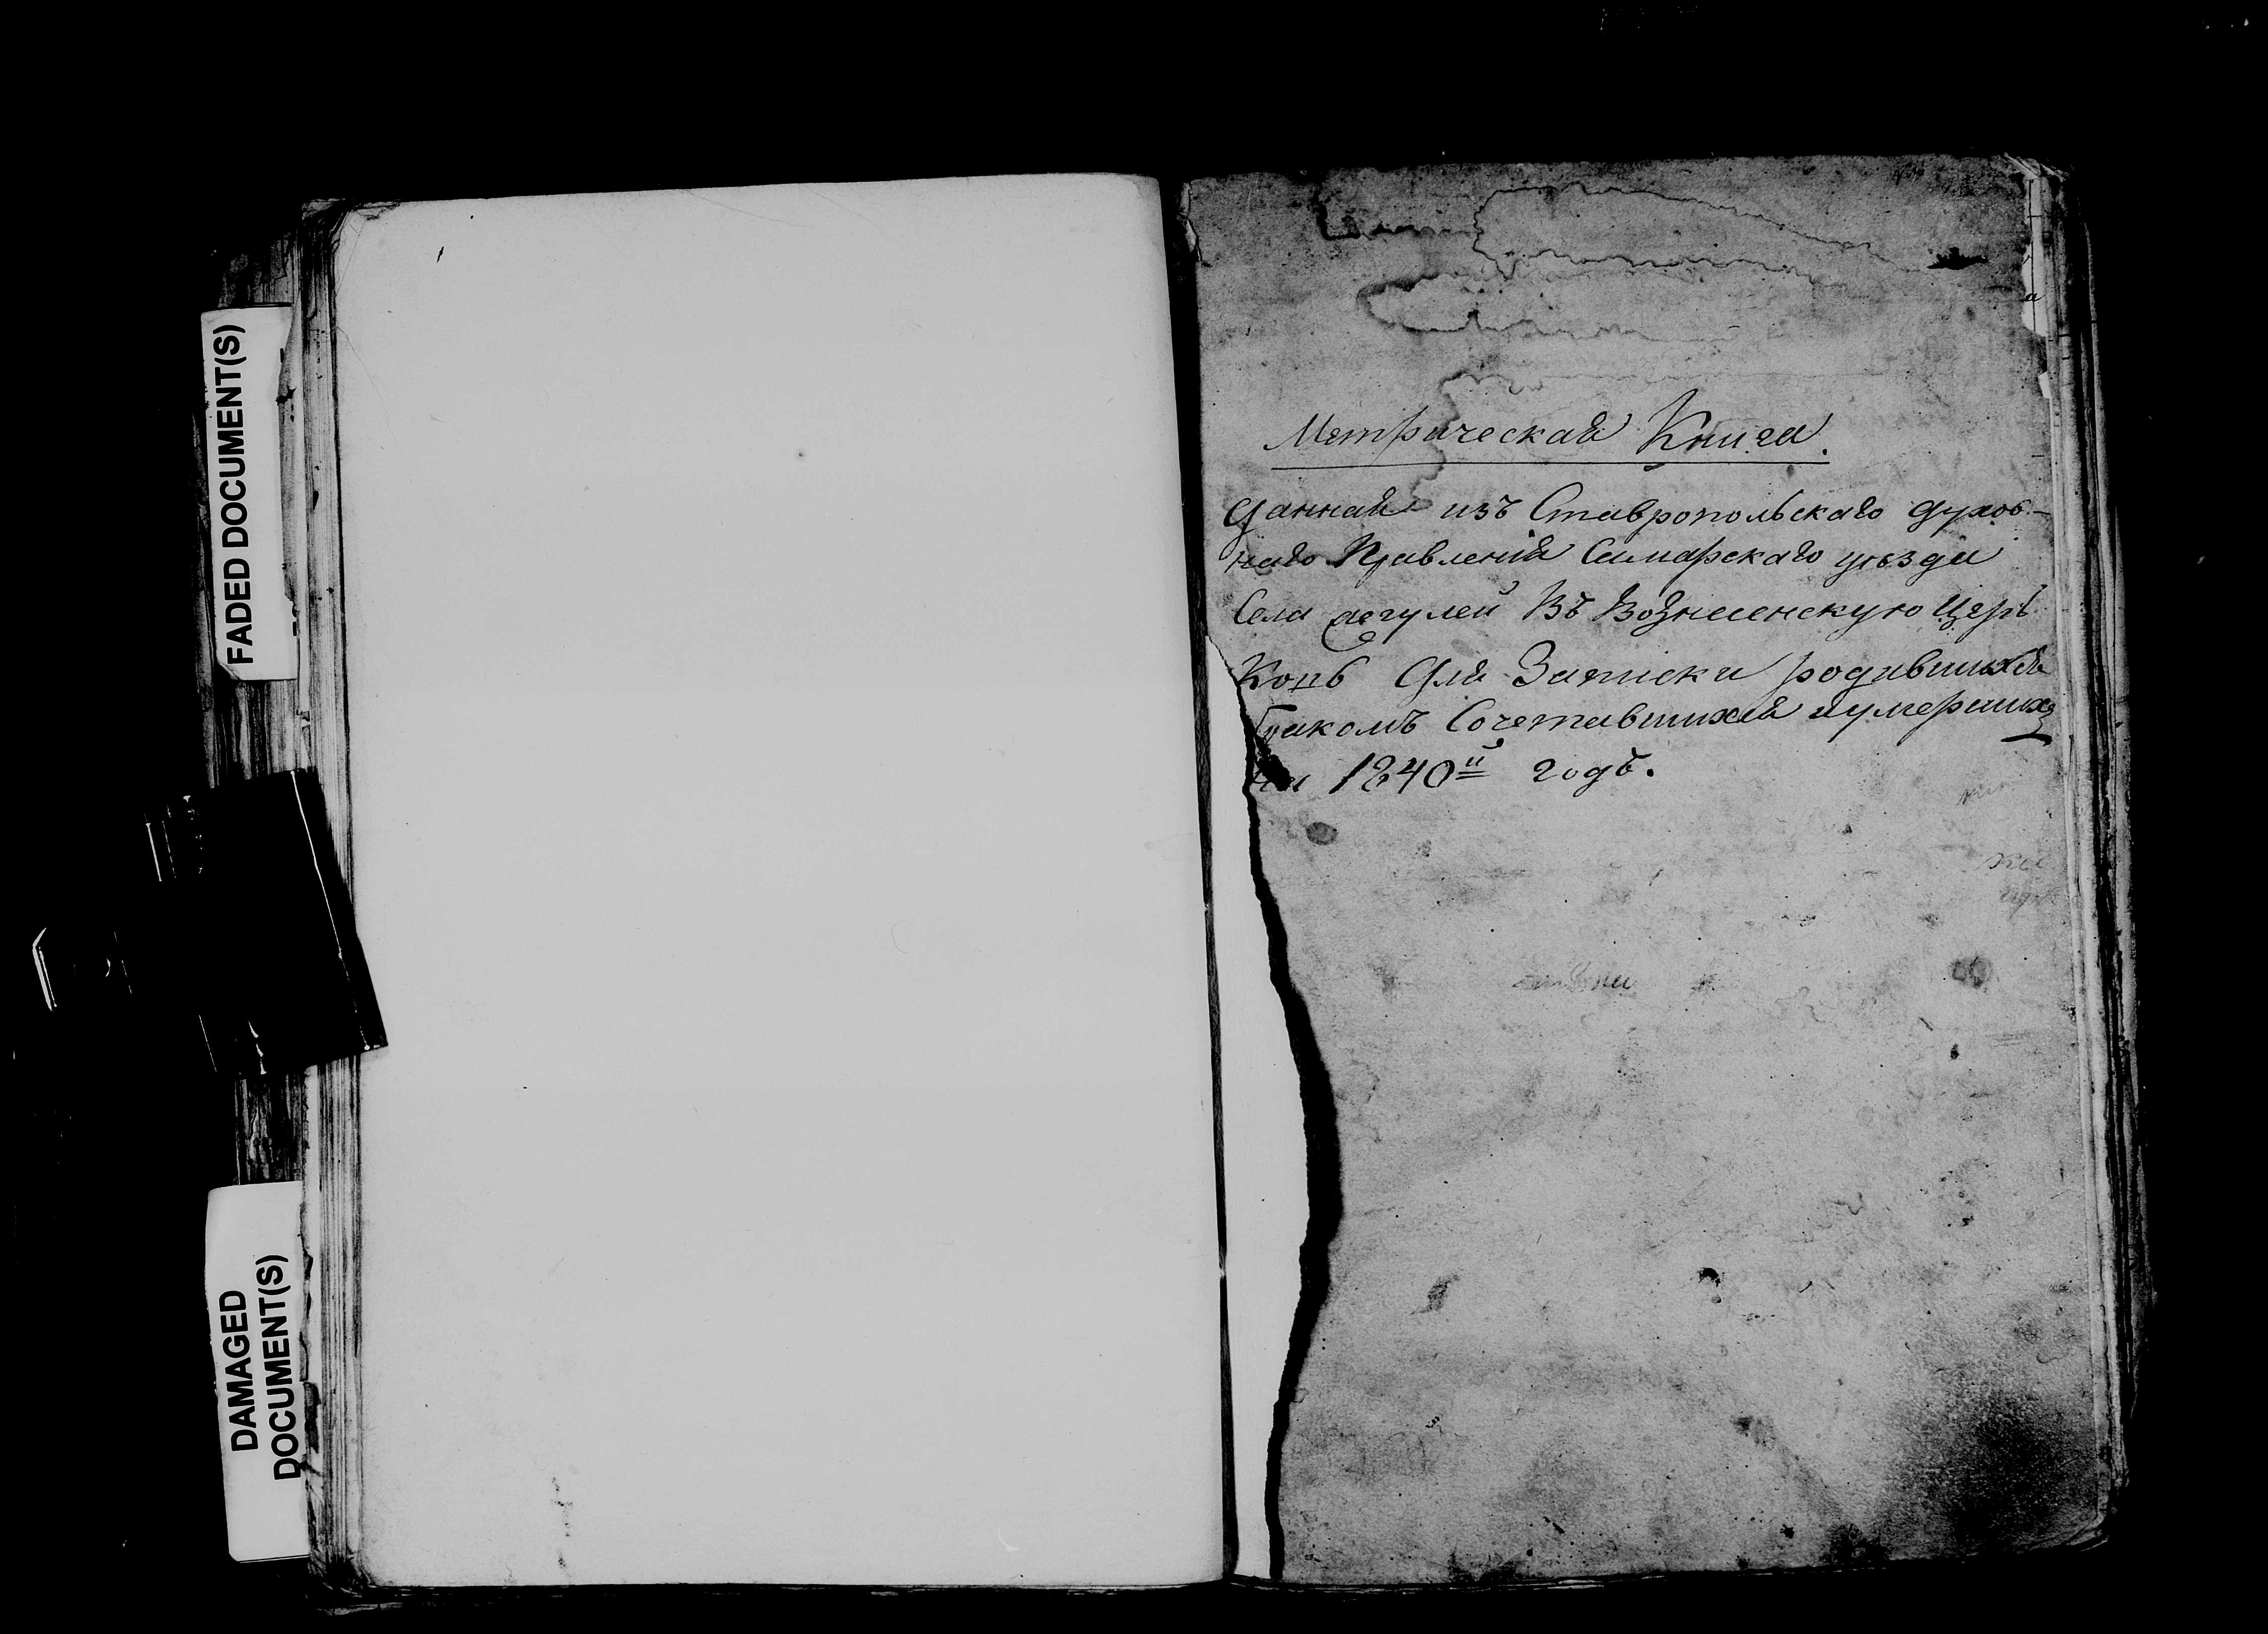 FADED DOCUMENT(S)
DAMAGED
DOCUMENT(S)
Метрическая Книга.
данная изъ Ставропольскаго духов-
наго Правления Самарскаго уѣзда
Села въ Вознесенскую Церь
Ковь для Записки родившихся
бракомъ Сочетавшихся иумершихъ
на 1840й годъ.